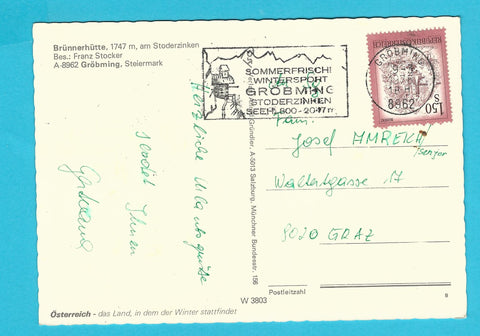 Brünnerhütte, 1747 m, am Stoderzinken
Bes.: Franz Stocker
A-8962 Gröbming, Steiermark
SOMMERFRISCHE
WINTERSPORT
GRÖBMING
STODERZINKEN
SEEH. 800-2047m
GRÖBMING
8962
REPUBLIK ÖSTERREICH
S 1.50
Herzliche Urlaubsgrüße
sendet Ihnen
Fam.
Josef
senior
17
8020 GRAZ
Gründler, A-5013 Salzburg, Münchner Bundesstr. 156
Postleitzahl
W 3803
Österreich - das Land, in dem der Winter stattfindet